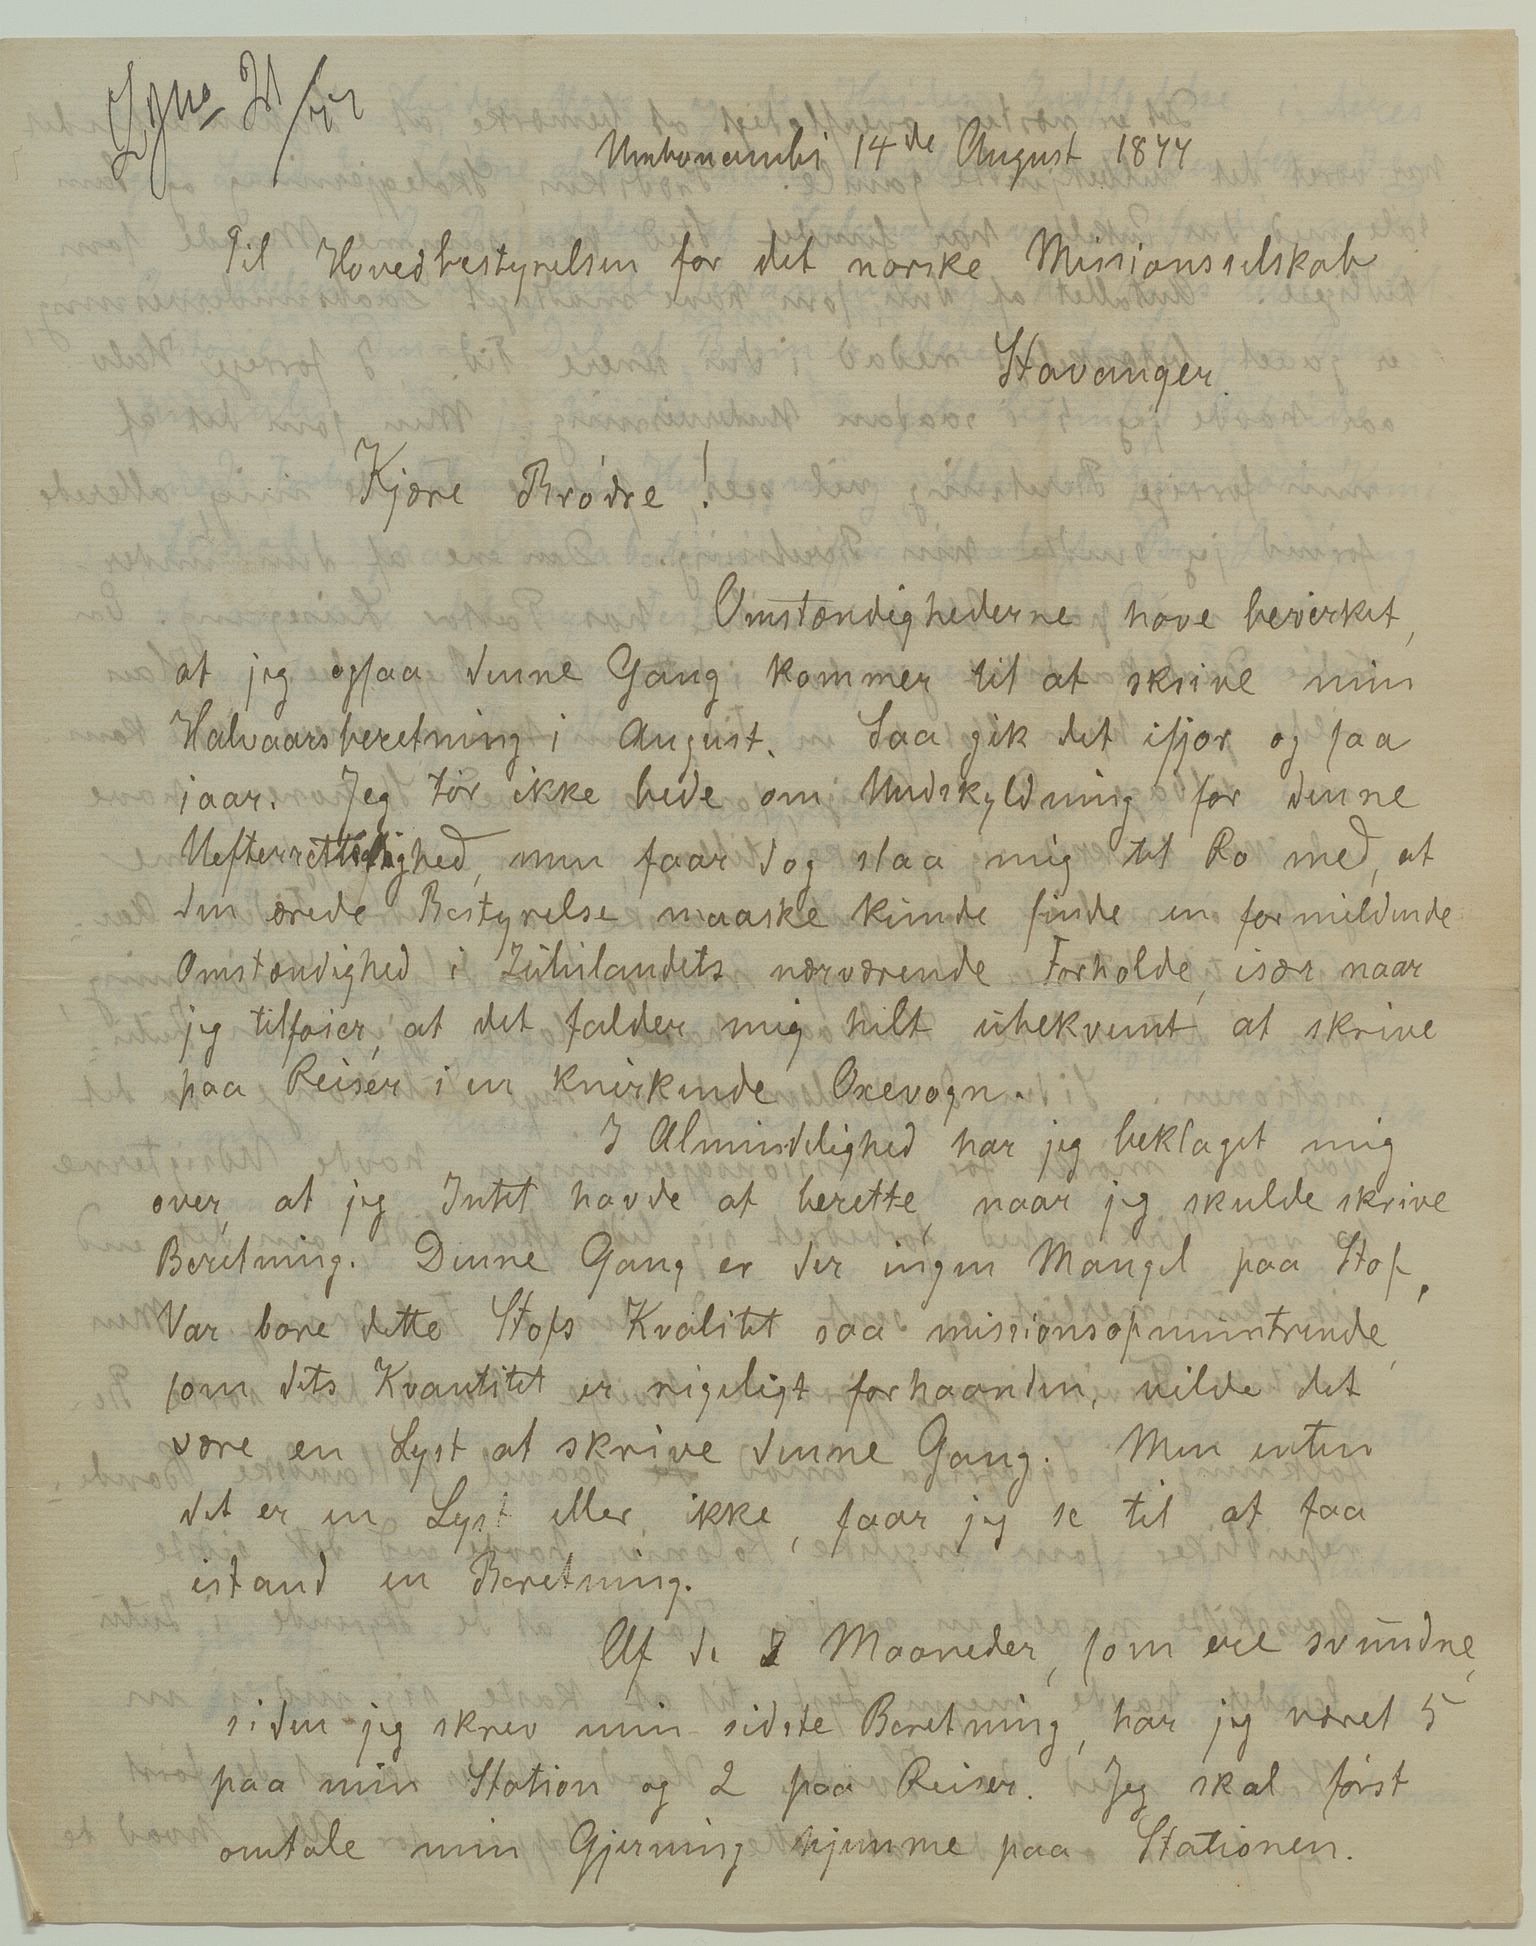 Umbonambi 14de August 1877
Til Hovedbestyrelsen for det norske Missionsselskab
Stavanger.
Kjære Brødre!
Omstændighederne have bevirket,
at jeg ogsaa denne Gang kommer til at skrive min
Halvaarsberetning i August. Saa gik det ifjor og saa
iaar. Jeg tør ikke bede om Undskyldning for denne
Uefterrettelighed, men faar dog slaa mig til Ro med, at
den ærede Bestyrelse maaske kunde finde en formildende
Omstændighed i Zululandets nærværende Forholde, især naar
jeg tilføier, at det falder mig hilt ubekvemt at skrive
paa Reiser i en knirkende Oxevogn.
I Almindelighed har jeg beklaget mig
over, at jeg Intet havde at berette, naar jeg skulde skrive
Beretning. Denne Gang er der ingen Mangel paa Stof.
Var bare dette Stofs Kvalitet saa missionsopmuntrende,
som dets Kvantitet er rigeligt forhaanden, vilde det
være en Lyst at skrive denne Gang. Men enten
det er en Lyst eller ikke, faar jeg se til at faa
istand en Beretning.
Af de 7 Maaneder, som ere svundne,
siden jeg skrev min sidste Beretning, har jeg været 5
paa min Station og 2 paa Reiser. Jeg skal først
omtale min Gjerning hjemme paa Stationen.